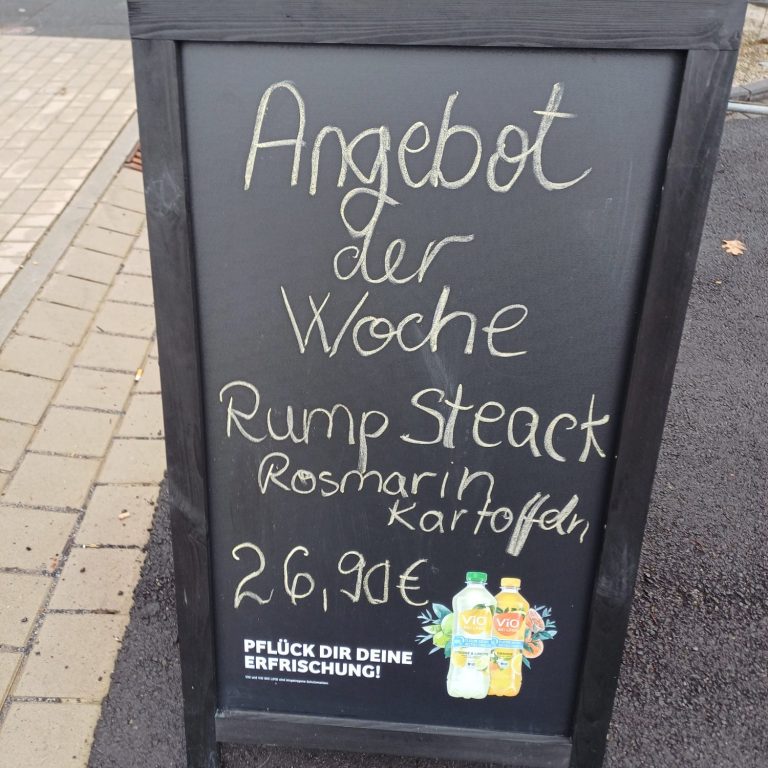 Angebot
der
Woche
Rump Steack
Rosmarin
Kartoffeln
26,90€
PFLÜCK DIR DEINE
ERFRISCHUNG!
ViO ViO